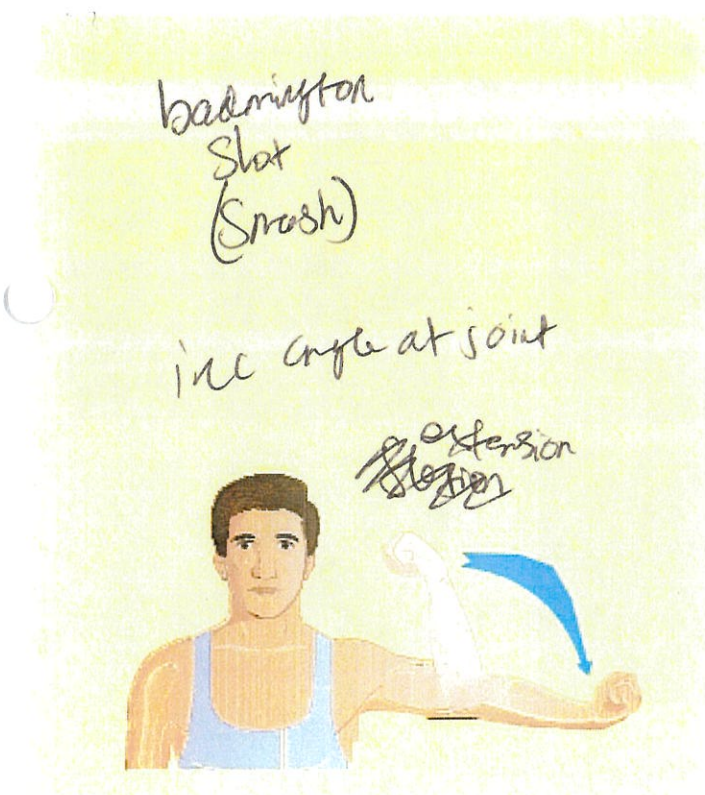 badmington
Shot
(Smash)
inc angle at joint
extension